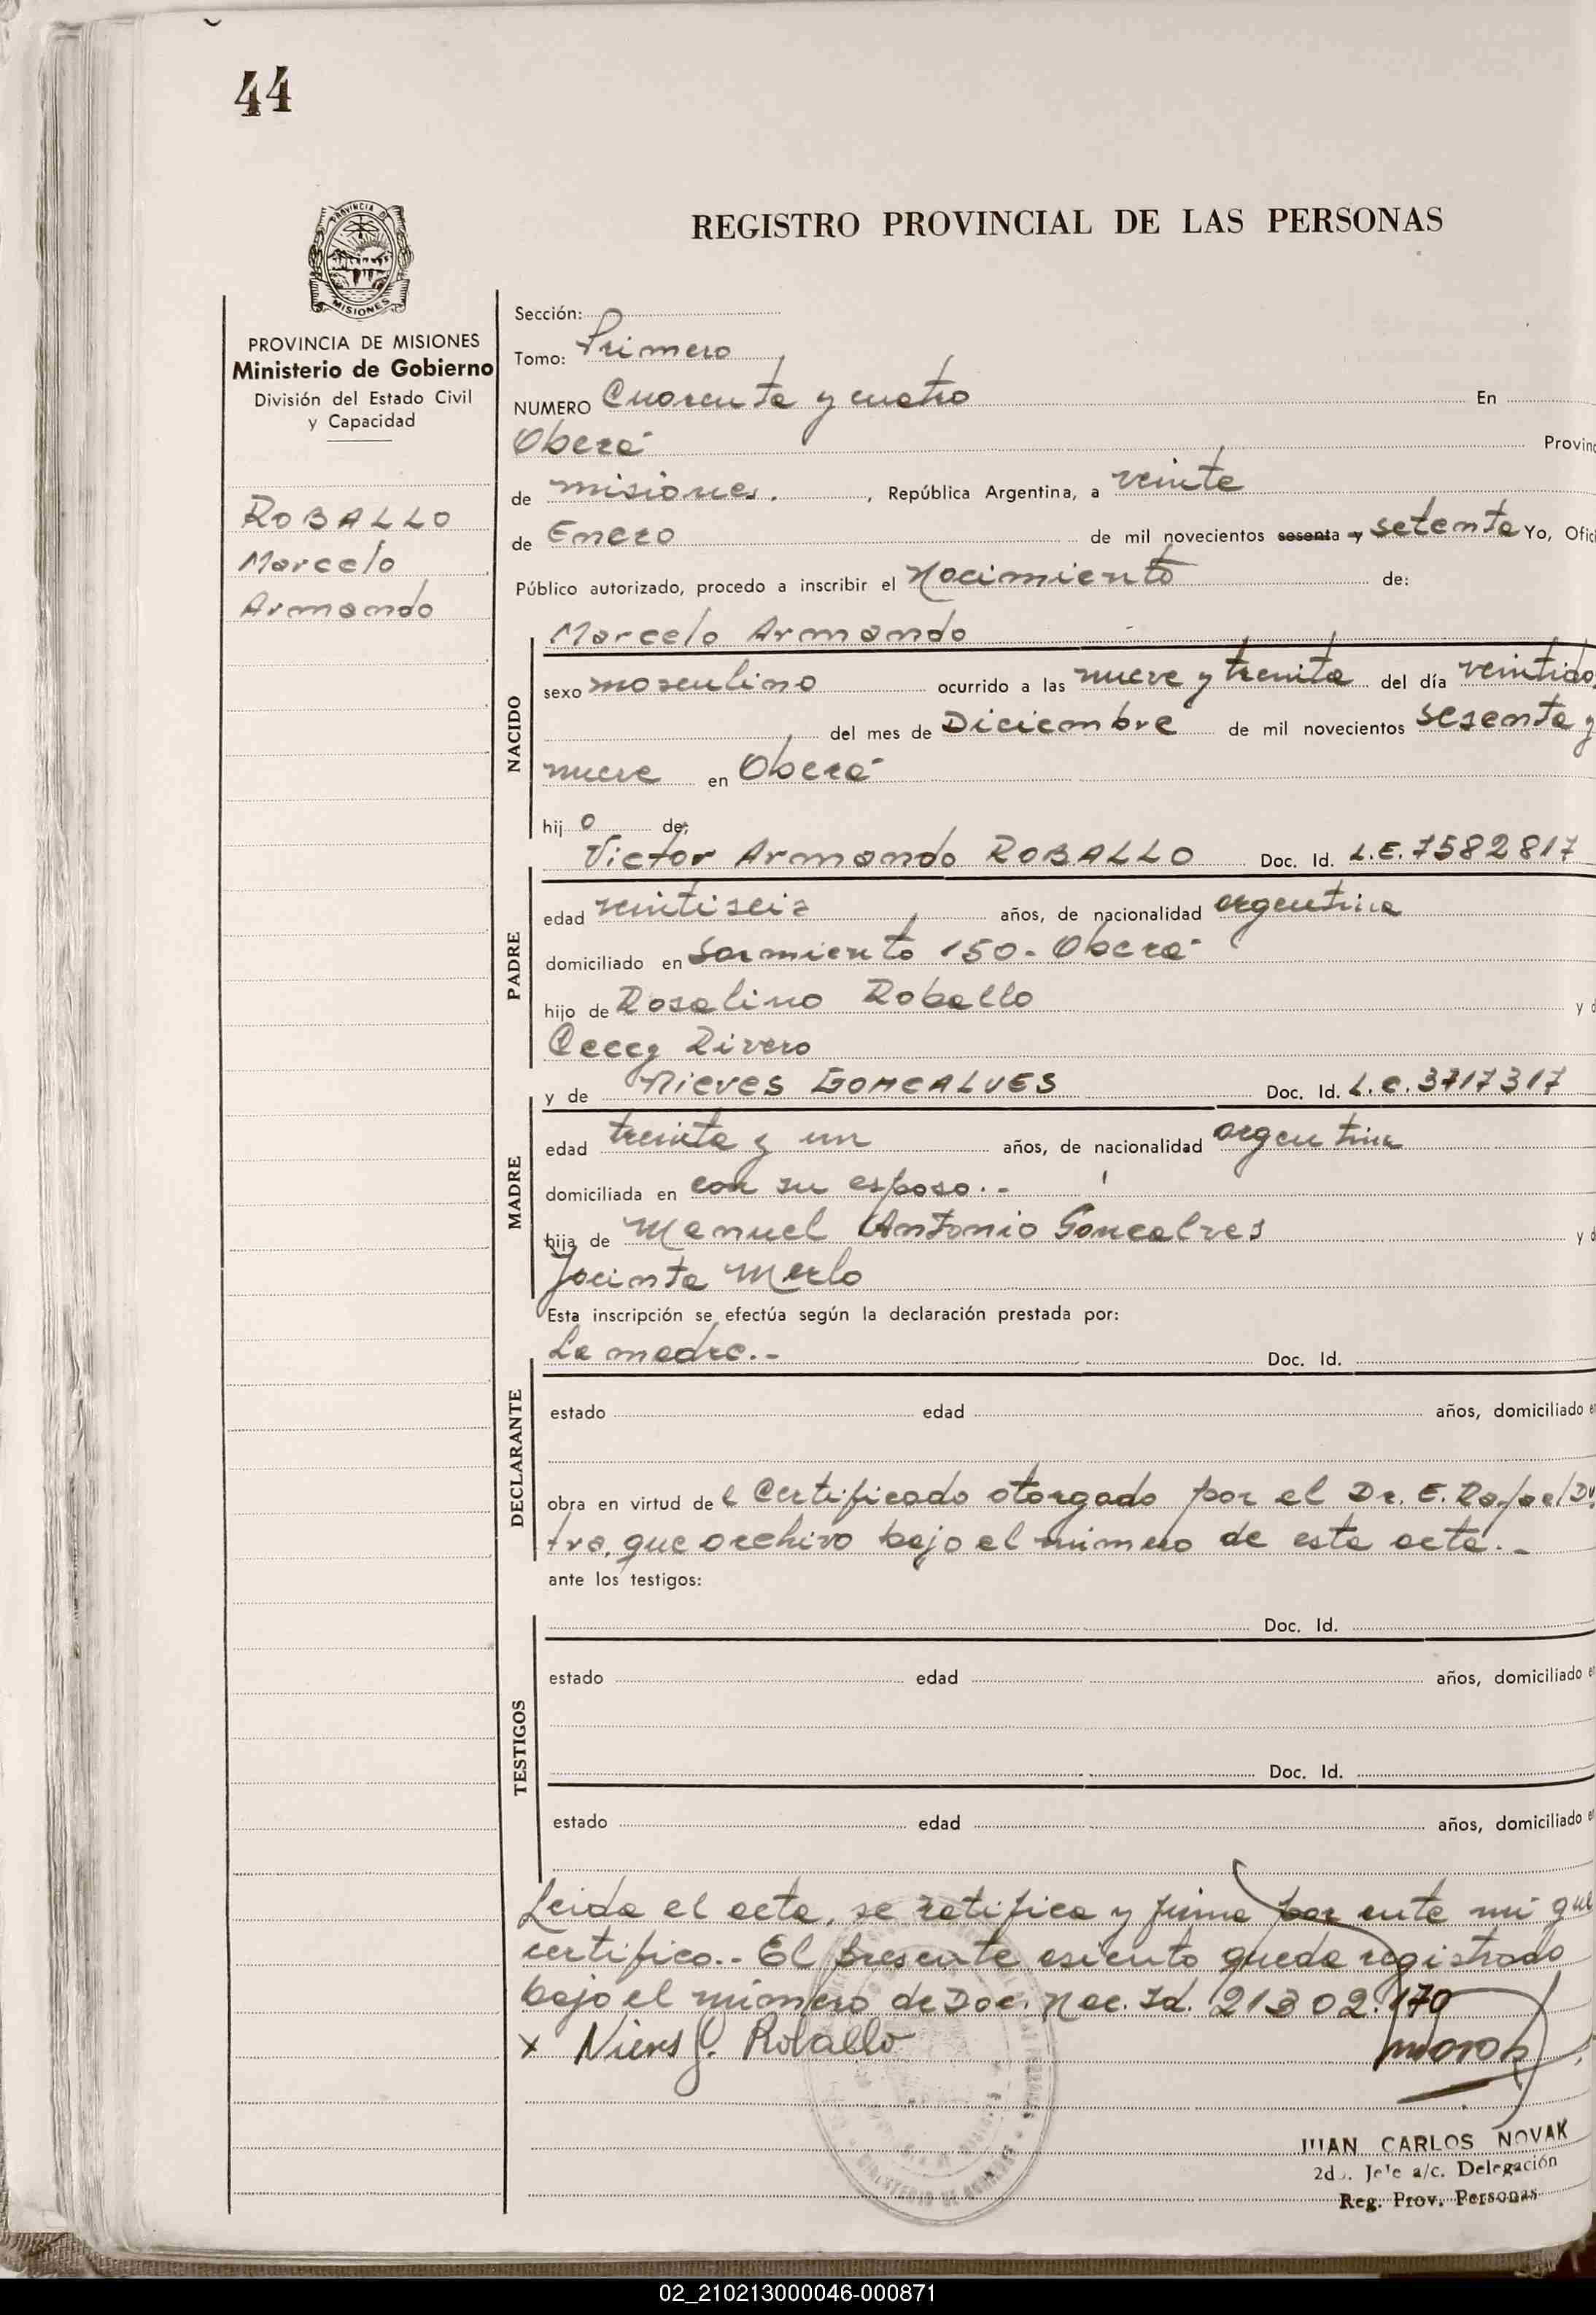 44
REGISTRO PROVINCIAL DE LAS PERSONAS
PROVINCIA DE
MISIONES
PROVINCIA DE MISIONES
Ministerio de Gobierno
División del Estado Civil
y Capacidad
ROBALLO
Marcelo
Armando
Sección:
Tomo: Primero
NUMERO Cuarenta y cuatro En
Oberá Provinc
de misiones. , República Argentina, a veinte
de Enero de mil novecientos sesenta y setenta Yo, Ofici
Público autorizado, procedo a inscribir el Nacimiento de:
Marcelo Armando
NACIDO
sexo masculino ocurrido a las nueve y treinta del día veintido
del mes de Diciembre de mil novecientos sesenta y
nueve en Oberá
hij o de:
Victor Armando ROBALLO Doc. Id. L.E. 7582817
PADRE
edad veintiseis años, de nacionalidad argentina
domiciliado en Sarmiento 150 - Oberá
hijo de Rosalino Roballo y d
Rivero
y de Nieves GONCALVES Doc. Id. L.C. 3717317
MADRE
edad treinta y un años, de nacionalidad argentina
domiciliada en con su esposo.-
hija de Manuel Antonio Goncalves y d
Jacinta Merlo
Esta inscripción se efectúa según la declaración prestada por:
La madre.- Doc. Id.
DECLARANTE
estado edad años, domiciliado en
obra en virtud de l Certificado otorgado por el Dr. E. Rafael Du
tra, que archivo bajo el número de esta acta.-
ante los testigos:
Doc. Id.
TESTIGOS
estado edad años, domiciliado en
Doc. Id.
estado edad años, domiciliado en
Leida el acta, se ratifica y firma por ante mi que
certifico.- El presente asiento queda registrado
bajo el número de Doc. Nac. Id. 21302.170
x Nieves G. Roballo
JUAN CARLOS NOVAK
2do. Jefe a/c. Delegación
Reg. Prov. Personas
02_210213000046-000871